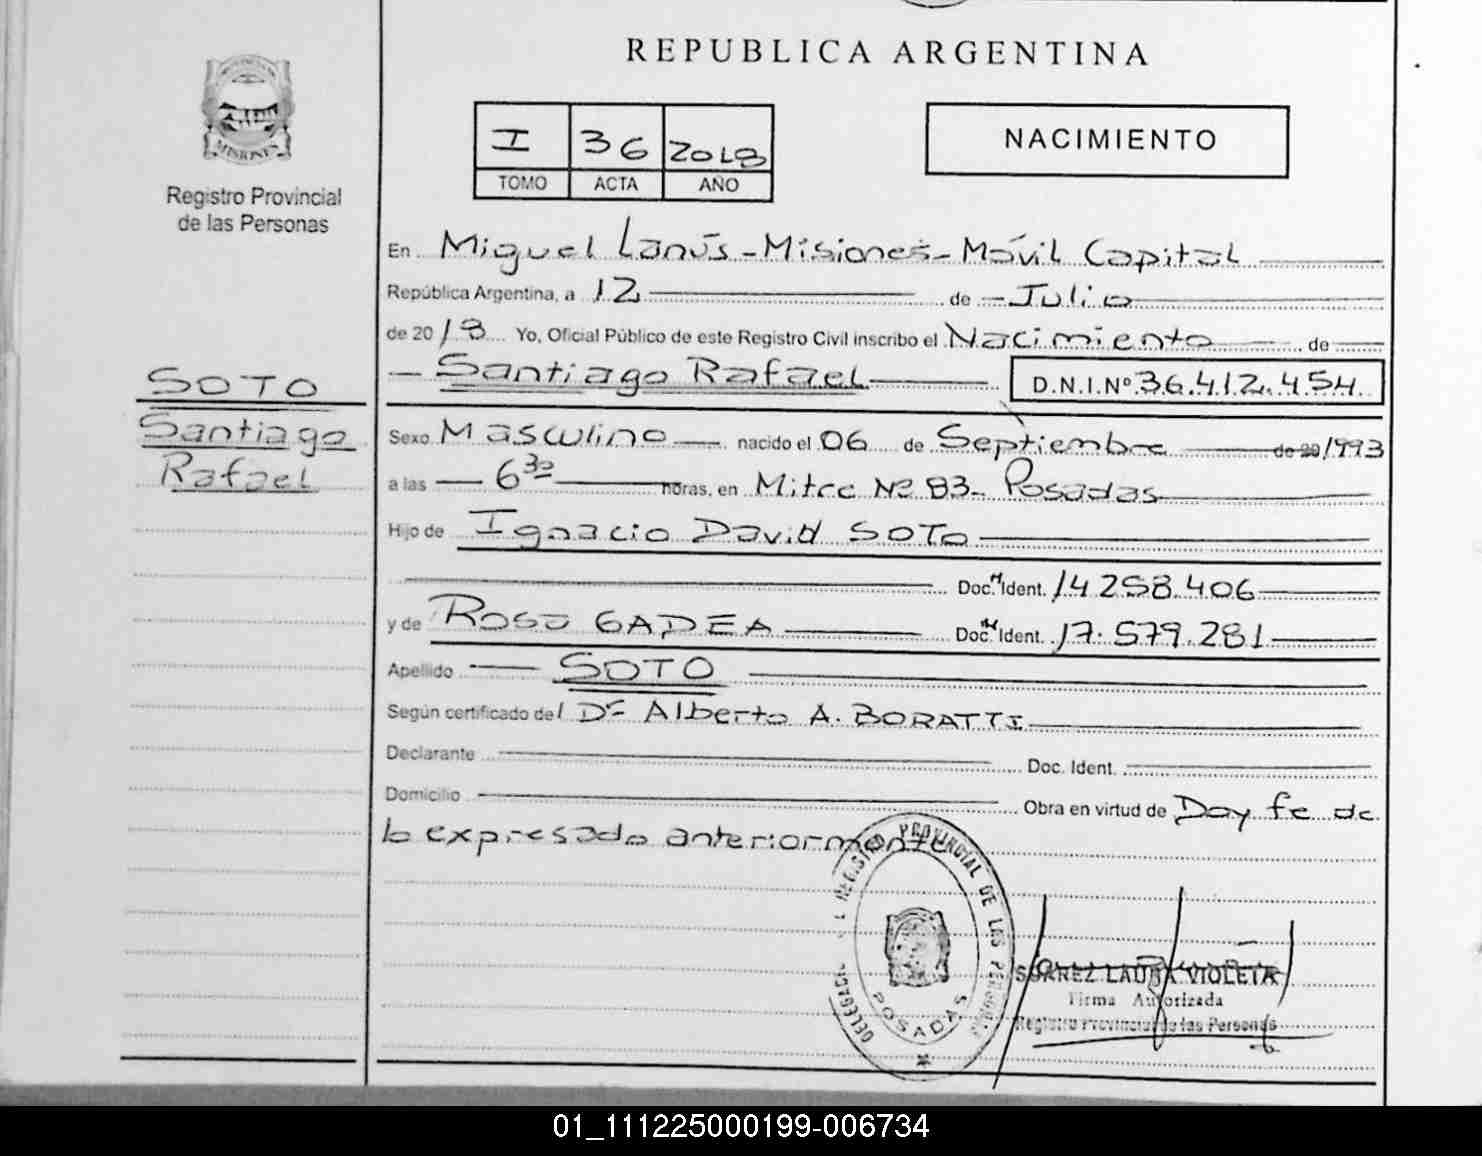 REPUBLICA ARGENTINA
MISIONES
Registro Provincial
de las Personas
I 36 2018
TOMO ACTA AÑO
NACIMIENTO
En Miguel Lanús - Misiones - Móvil Capital
República Argentina, a 12 de Julio
de 2018 Yo, Oficial Público de este Registro Civil inscribo el Nacimiento de
Santiago Rafael D.N.I.Nº 36.412.454
SOTO
Santiago
Rafael
Sexo Masculino nacido el 06 de Septiembre de 20 1993
a las 6 30 horas, en Mitre Nº 83 - Posadas
Hijo de Ignacio David SOTO
Doc. N Ident. 14.258.406
y de Rosa GADEA Doc. N Ident. 17.579.281
Apellido SOTO
Según certificado del Dr Alberto A. BORATTI
Declarante Doc. Ident.
Domicilio Obra en virtud de Doy fe de
lo expresado anteriormente
REGISTRO PROVINCIAL DE LAS PERSONAS
POSADAS
SUAREZ LAURA VIOLETA
Firma Autorizada
Registro Provincial de las Personas
01_111225000199-006734